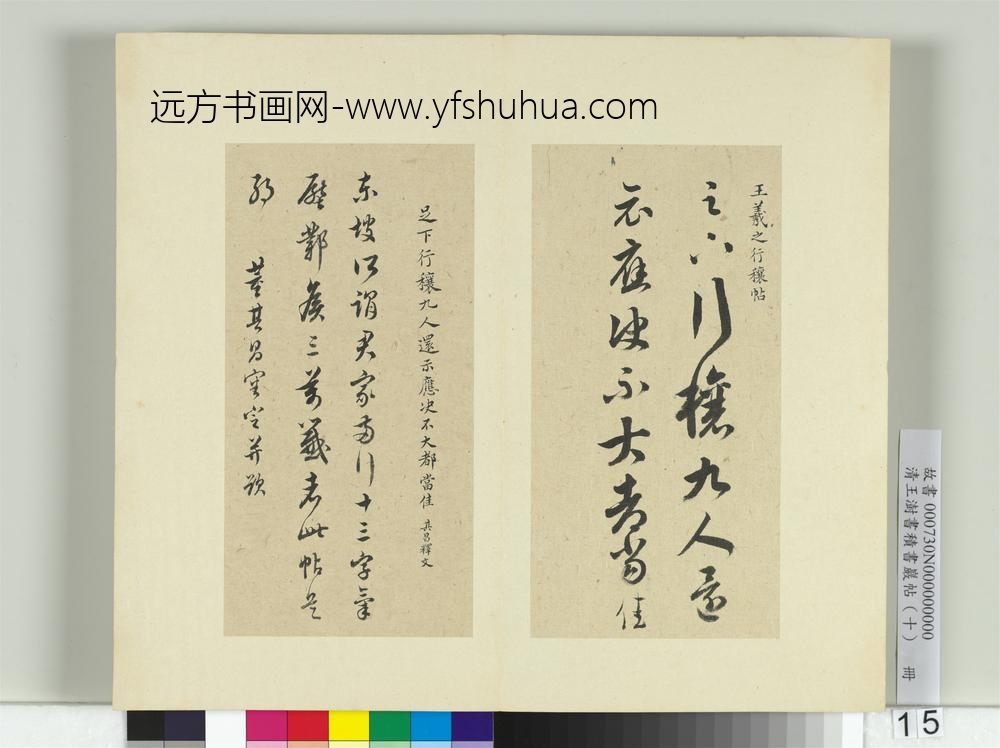 远方书画网-www.yfshuhua.com
王羲之行穰帖
足下行穰九人還
示應決不大都當佳
足下行穰九人還示應決不大都當佳 其昌釋文
東坡所謂君家兩行十三字氣
壓鄴侯三萬籤者此帖是
耶
董其昌審定并題
故書 000730N000000000
清王澍書積書巖帖（十） 冊
15